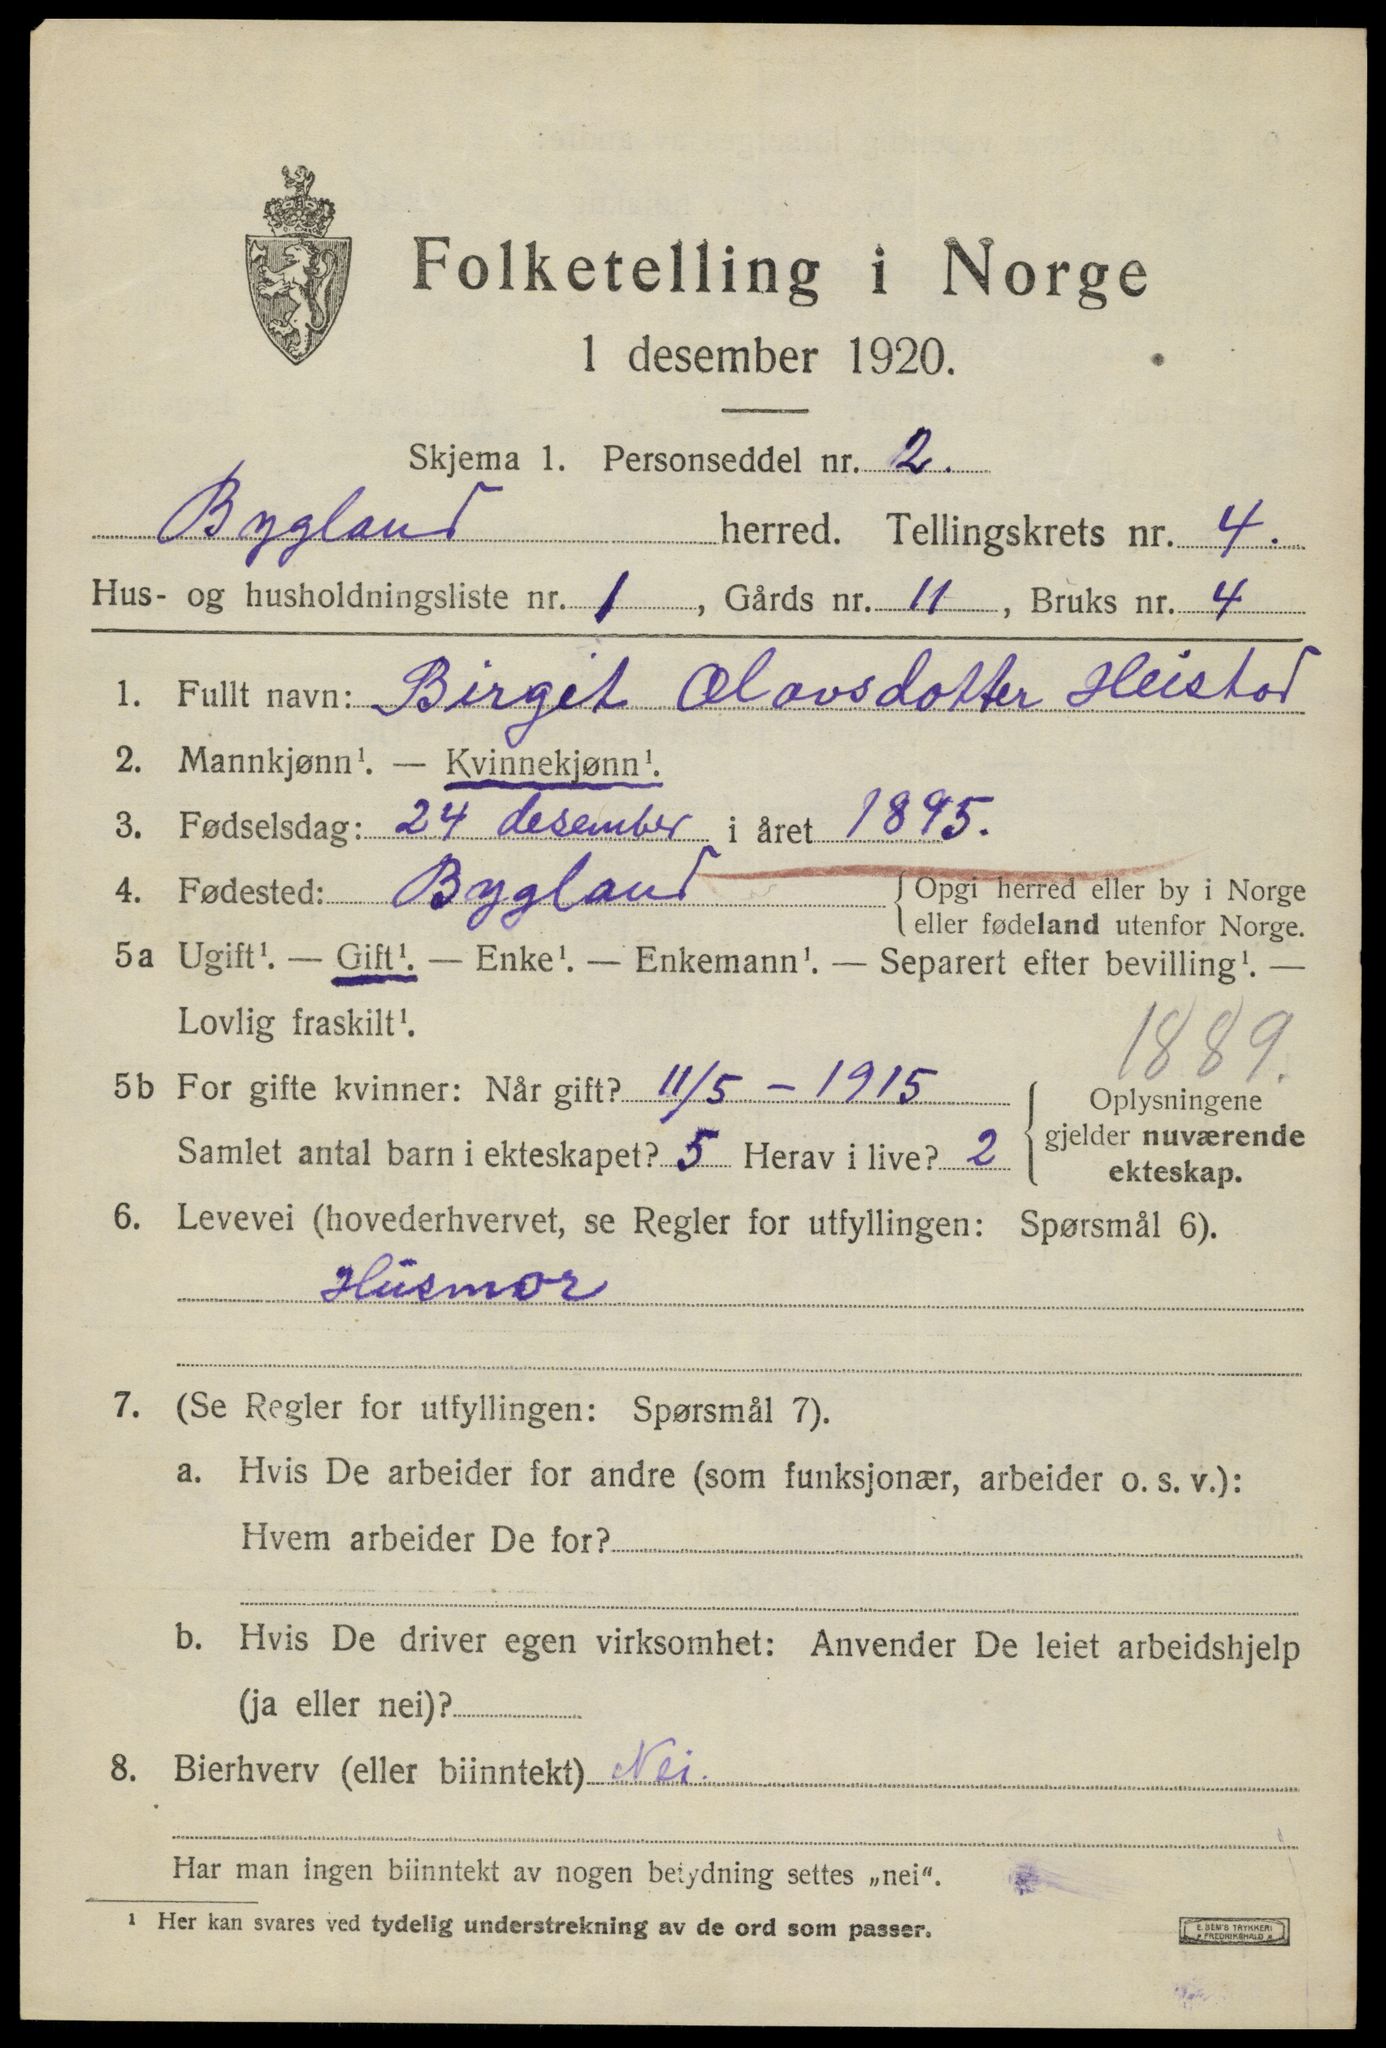 Folketelling i Norge
1 desember 1920.
Skjema 1. Personseddel nr. 2.
Bygland herred. Tellingskrets nr. 4.
Hus- og husholdningsliste nr. 1, Gårds nr. 11, Bruks nr. 4
1. Fullt navn: Birgit Olavsdotter Heistad
2. Mannkjønn¹. — Kvinnekjønn¹.
3. Fødselsdag: 24 desember i året 1895.
4. Fødested: Bygland { Opgi herred eller by i Norge
eller fødeland utenfor Norge.
5a Ugift¹. — Gift¹. — Enke¹. — Enkemann¹. — Separert efter bevilling¹. —
Lovlig fraskilt¹.
1889.
5b For gifte kvinner: Når gift? 11/5 – 1915 { Oplysningene
gjelder nuværende
ekteskap.
Samlet antal barn i ekteskapet? 5 Herav i live? 2
6. Levevei (hovederhvervet, se Regler for utfyllingen: Spørsmål 6).
Husmor
7. (Se Regler for utfyllingen: Spørsmål 7).
a. Hvis De arbeider for andre (som funksjonær, arbeider o. s. v.):
Hvem arbeider De for?
b. Hvis De driver egen virksomhet: Anvender De leiet arbeidshjelp
(ja eller nei)?
8. Bierhverv (eller biinntekt) Nei.
Har man ingen biinntekt av nogen betydning settes „nei“.
¹ Her kan svares ved tydelig understrekning av de ord som passer.
E. SEM'S TRYKKERI
FREDRIKSHALD